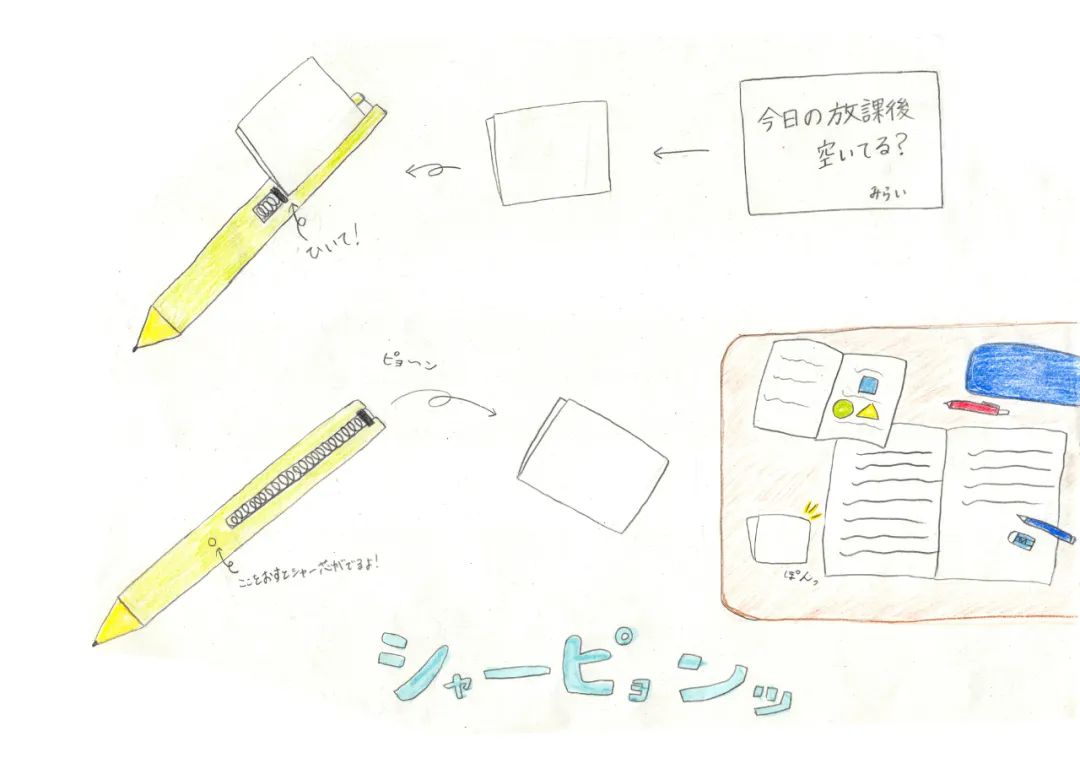 今日の放課後
空いてる?
みらい
ひいて!
ピョーン
ここをおすとシャー芯がでるよ!
ぽんっ
シャーピョンッ